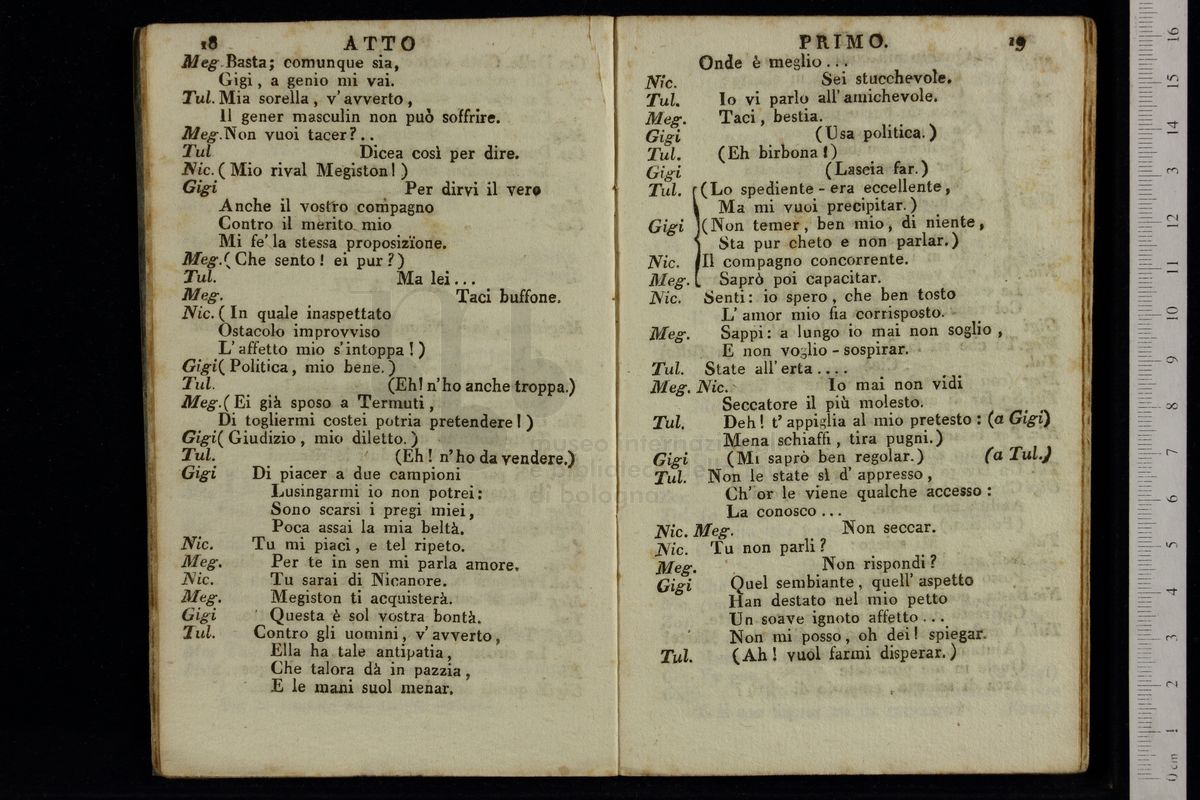 18 ATTO
Meg. Basta; comunque sia,
Gigi, a genio mi vai.
Tul. Mia sorella, v'avverto,
Il gener masculin non può soffrire.
Meg. Non vuoi tacer?..
Tul Dicea così per dire.
Nic. (Mio rival Megiston!)
Gigi Per dirvi il vero
Anche il vostro compagno
Contro il merito mio
Mi fe' la stessa proposizïone.
Meg. (Che sento! ei pur?)
Tul. Ma lei...
Meg. Taci buffone.
Nic. (In quale inaspettato
Ostacolo improvviso
L'affetto mio s'intoppa!)
Gigi (Politica, mio bene.)
Tul. (Eh! n'ho anche troppa.)
Meg. (Ei già sposo a Termuti,
Di togliermi costei potria pretendere!)
Gigi (Giudizio, mio diletto.)
Tul. (Eh! n'ho da vendere.)
Gigi Di piacer a due campioni
Lusingarmi io non potrei:
Sono scarsi i pregi miei,
Poca assai la mia beltà.
Nic. Tu mi piaci, e tel ripeto.
Meg. Per te in sen mi parla amore.
Nic. Tu sarai di Nicanore.
Meg. Megiston ti acquisterà.
Gigi Questa è sol vostra bontà.
Tul. Contro gli uomini, v'avverto,
Ella ha tale antipatia,
Che talora dà in pazzia,
E le mani suol menar.
PRIMO. 19
Onde è meglio...
Nic. Sei stucchevole.
Tul. Io vi parlo all'amichevole.
Meg. Taci, bestia.
Gigi (Usa politica.)
Tul. (Eh birbona!)
Gigi (Lascia far.)
Tul. (Lo spediente - era eccellente,
Ma mi vuoi precipitar.)
Gigi (Non temer, ben mio, di niente,
Sta pur cheto e non parlar.)
Nic. Il compagno concorrente.
Meg. Saprò poi capacitar.
Nic. Senti: io spero, che ben tosto
L'amor mio fia corrisposto.
Meg. Sappi: a lungo io mai non soglio,
E non voglio - sospirar.
Tul. State all'erta....
Meg. Nic. Io mai non vidi
Seccatore il più molesto.
Tul. Deh! t'appiglia al mio pretesto: (a Gigi)
Mena schiaffi, tira pugni.)
Gigi (Mi saprò ben regolar.) (a Tul.)
Tul. Non le state sì d'appresso,
Ch'or le viene qualche accesso:
La conosco...
Nic. Meg. Non seccar.
Nic. Tu non parli?
Meg. Non rispondi?
Gigi Quel sembiante, quell'aspetto
Han destato nel mio petto
Un soave ignoto affetto...
Non mi posso, oh dei! spiegar.
Tul. (Ah! vuol farmi disperar.)
museo internaz
di bologna
0 cm 1 2 3 4 5 6 7 8 9 10 11 12 13 14 15 16